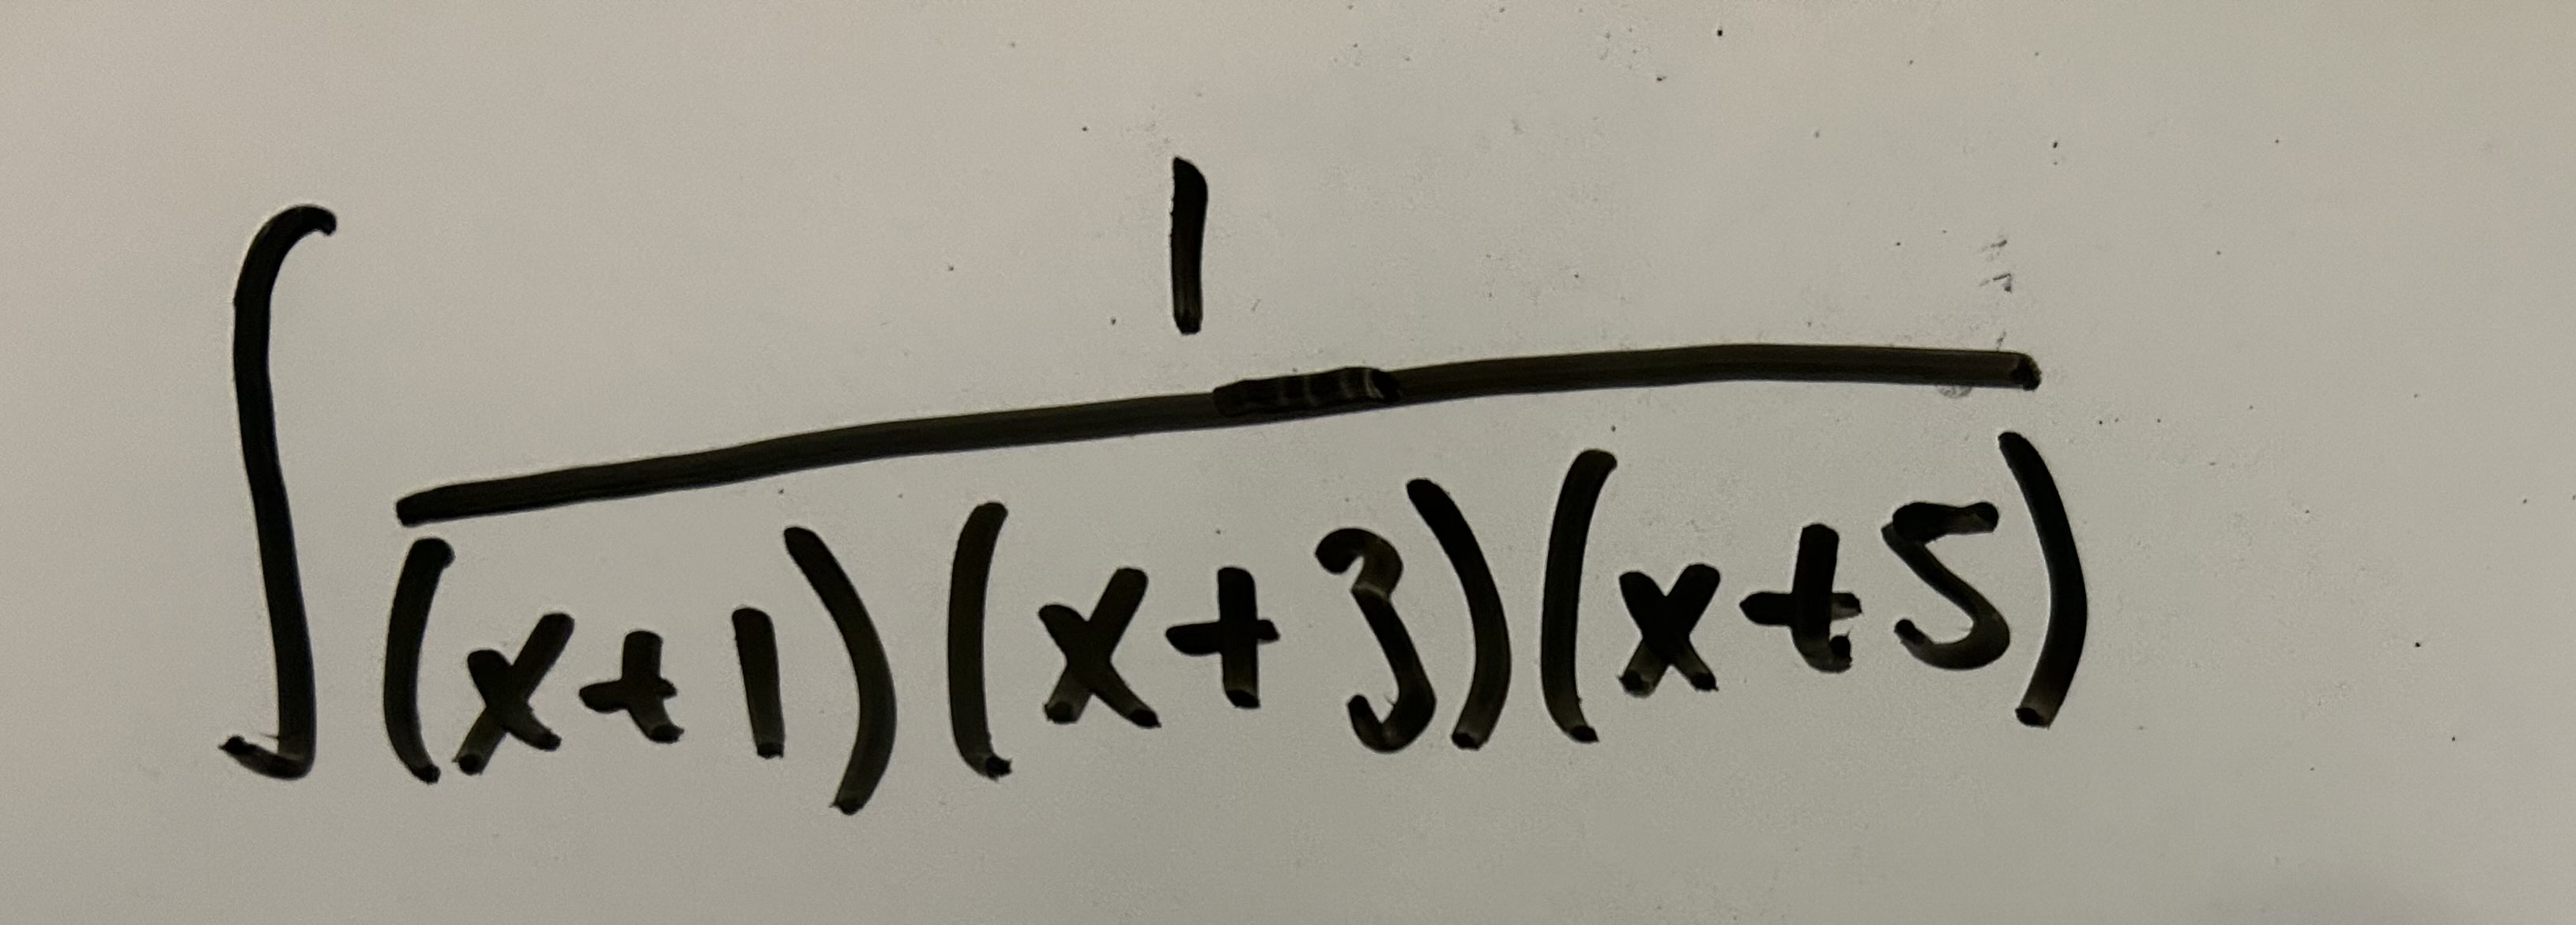 ∫ 1
(x+1)(x+3)(x+5)